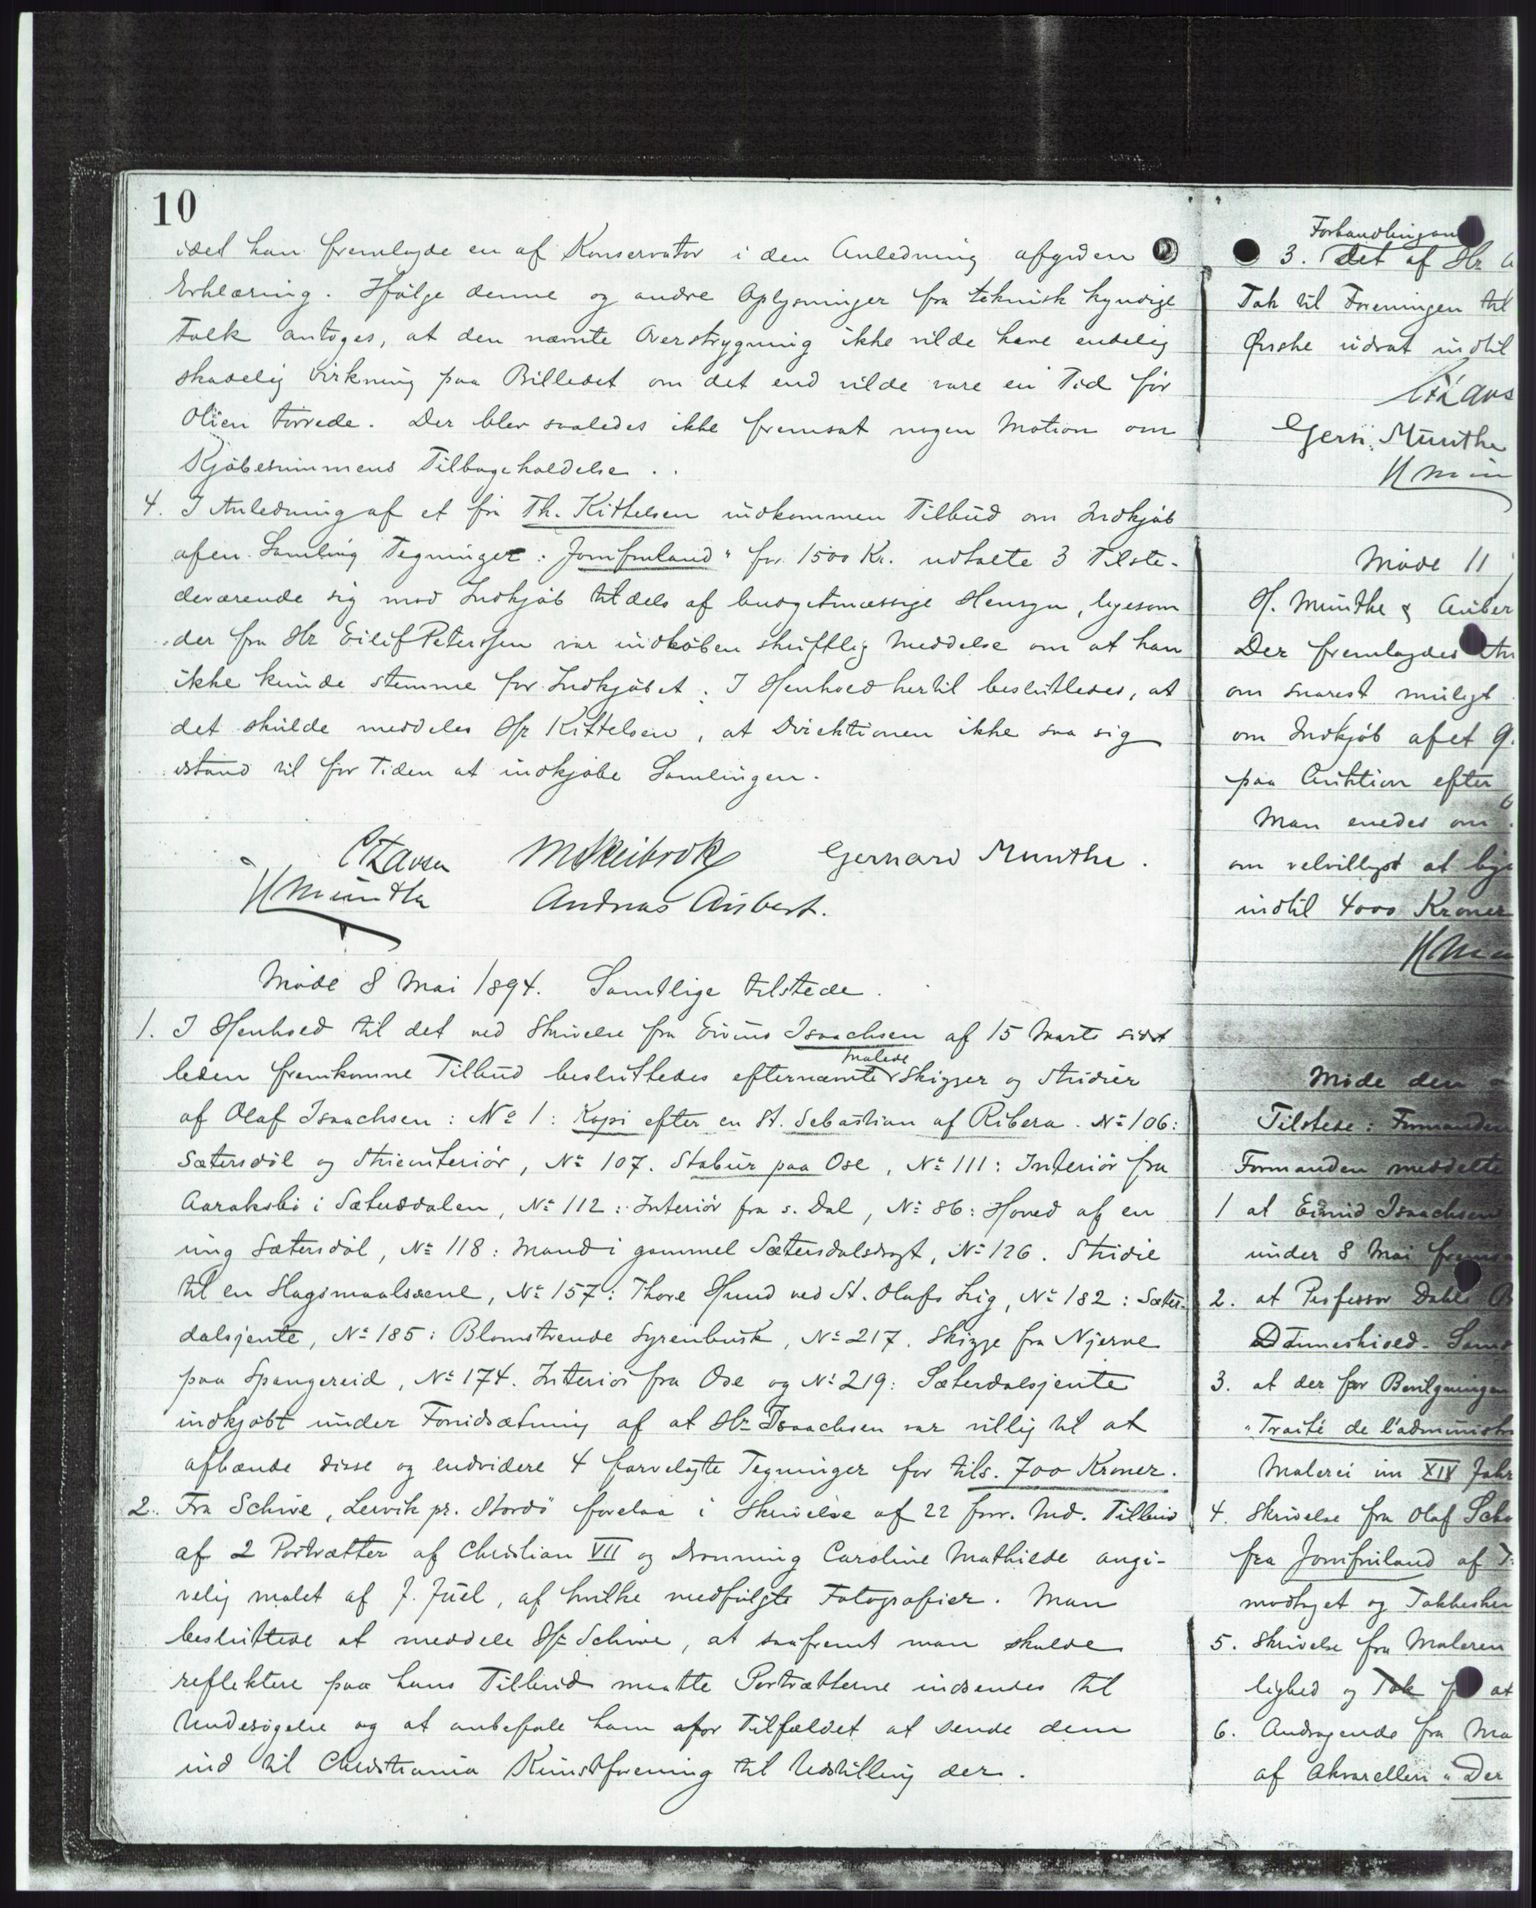 10
idet han fremlagde en af Konservator i den Anledning afgiven
Erklæring. Ifølge denne og andre Oplysninger fra teknisk kyndige
Folk antoges, at den nævnte Overstrygning ikke vilde have endelig
skadelig Virkning paa Billedet om det end vilde vare en Tid før
Olien tørrede. Der blev saaledes ikke fremsat nogen Motion om
Kjøbesummens Tilbageholdelse.
4. I Anledning af et fra Th. Kittelsen indkommen Tilbud om Indkjøb
af en Samling Tegninger: Jomfruland" for 1500 Kr. udtalte 3 Tilste-
deværende sig mod Indkjøb tildels af budgetmæssige Hensyn, ligesom
der fra Hr Eilif Peterssen var indløben skriftlig Meddelse om at han
ikke kunde stemme for Indkjøbet. I Henhold hertil besluttedes, at
det skulde meddeles Hr Kittelsen, at Direktionen ikke saa sig
istand til for Tiden at indkjøbe Samlingen.
M Skeibrok Gerhard Munthe.
H Munthe Andreas Aubert.
Møde 8 Mai 1894. Samtlige tilstede.
1. I Henhold til det ved Skrivelse fra Eivind Isaachsen af 15 Marts sidst
leden fremkomne Tilbud besluttedes efternævnte malede Skizzer og Studier
af Olaf Isaachsen: No 1: Kopi efter en St. Sebastian af Ribera. No 106:
Sætersdøl og Stueinteriør, No 107. Stabur paa Ose, No 111: Interiør fra
Aaraksbø i Sætersdalen, No 112: Interiør fra s. Dal, No 86: Hoved af en
ung Sætersdøl, No 118: Mand i gammel Sætersdalsdragt, No 126. Studie
til en Slagsmaalsscene, No 157: Thore Hund ved St. Olafs Lig, No 182: Sæters-
dalsjente, No 185: Blomstrende Syrenbusk, No 217. Skizze fra Njerve
paa Spangereid, No 174. Interiør fra Ose og No 219: Sæterdalsjente
indkjøbt under Forudsætning af at Hr Isaachsen var villig til at
afhænde disse og endvidere 4 farvelagte Tegninger for tils. 700 Kroner.
2. Fra Schive, Lervik pr. Stordø forelaa i Skrivelse af 22 forr. Md. Tilbud
af 2 Portrætter af Christian VII og Dronning Caroline Mathilde angi-
velig malet af J. Juel, af hvilke medfulgte Fotografier. Man
besluttede at meddele Hr Schive, at saafremt man skulde
reflektere paa hans Tilbud maatte Portrætterne indsendes til
Undersøgelse og at anbefale ham for Tilfældet at sende dem
ind til Christiania Kunstforening til Udstilling der.
Forhandlingen
3. det af Hr
Tak til Foreningen til
Ønske udsat indtil
Gerh. Munthe
Møde 11
H. Munthe & Auber
Der fremlagdes
om snarest muligt
om Indkjøb af et
paa Auktion efter
Man enedes om
om velvilligst at
indtil 4000 Kroner
Møde den
Tilstede: Formanden
Formanden meddelte
1 at Eivind Isaachsen
under 8 Mai
2. at Professor Dahls
Danneskiold-
3. at der for Bevilgningen
"Traité de l'administr
Malerei im XIV Jahr
4. Skrivelse fra Olaf
fra Jomfruland af
modtaget og
5. Skrivelse fra Maleren
lighed og Tak at
6. Andragende fra Ma
af Akvarellen "Der